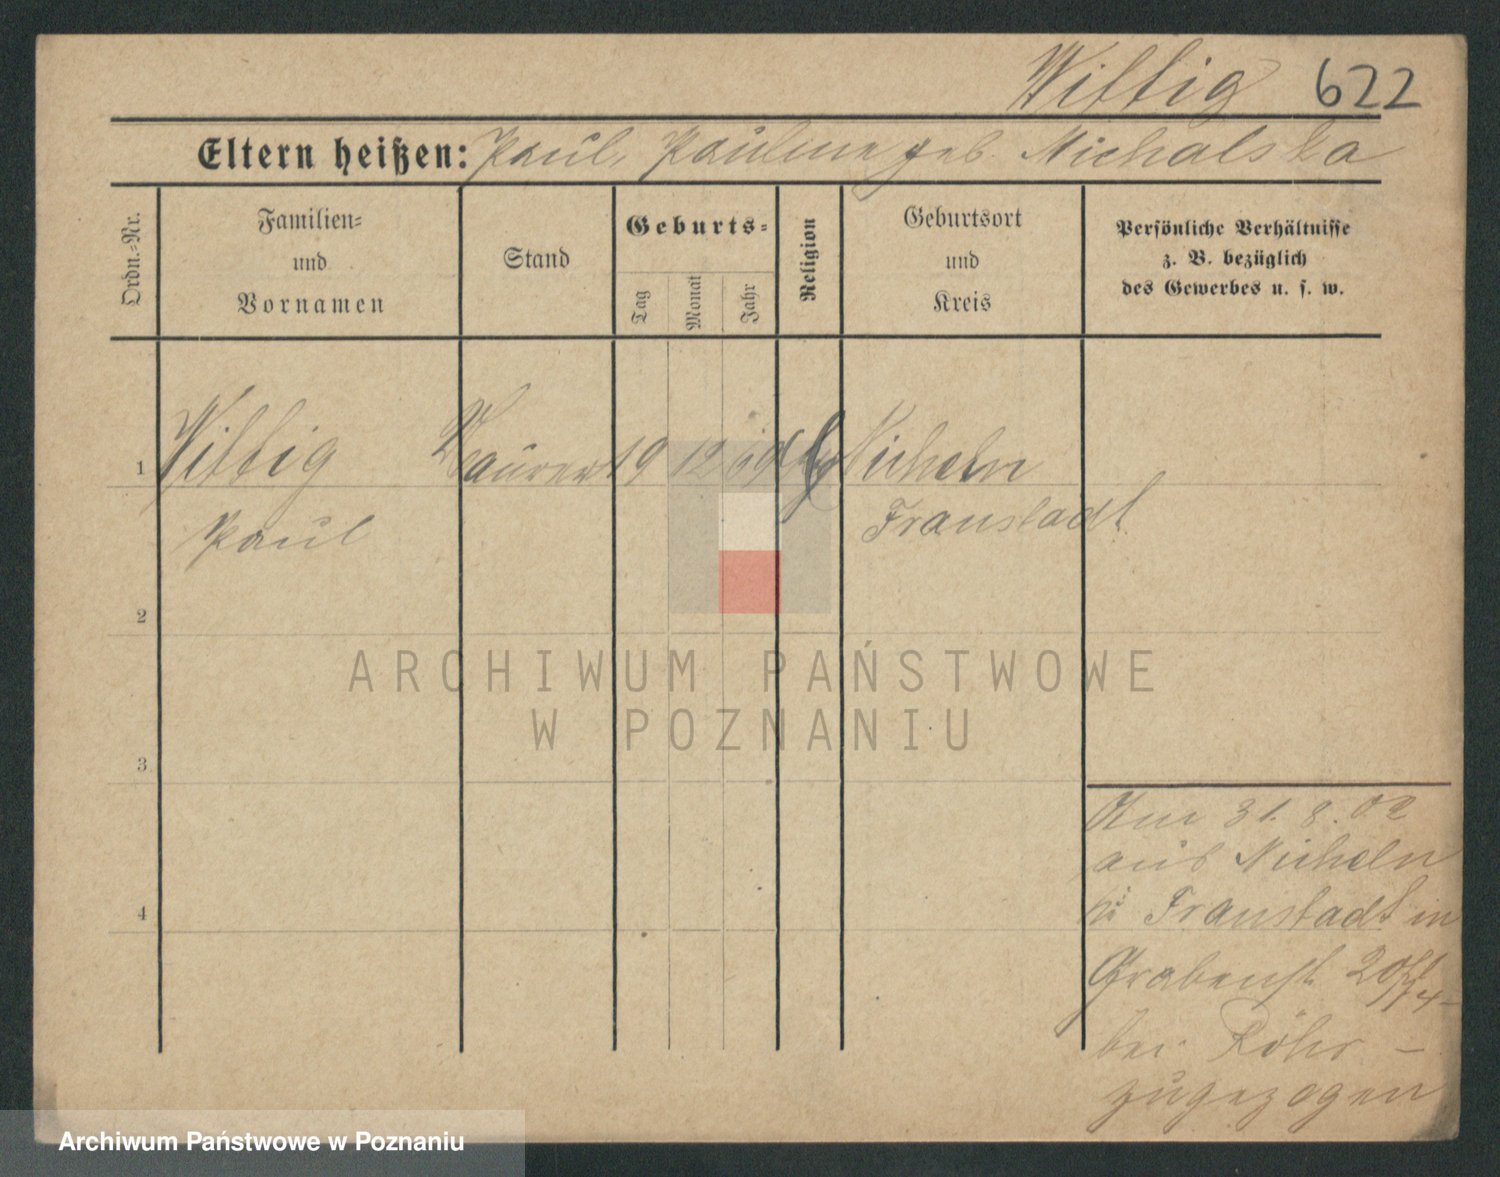 Wittig 622
Eltern heißen: Paul, Pauline geb. Michalska
Ordn.-Nr.
Familien-
und
Vornamen
Stand
Geburts-
Tag
Monat
Jahr
Religion
Geburtsort
und
Kreis
Persönliche Verhältnisse
z. B. bezüglich
des Gewerbes u. s. w.
1 Wittig Maurer 19 12 Nicheln
Paul Fraustadt
2
3
4
Am 31. 8. 02
aus Nicheln
Fraustadt in
Grabenst. 20
bei Röhr –
zugezogen
ARCHIWUM PAŃSTWOWE
W POZNANIU
Archiwum Państwowe w Poznaniu